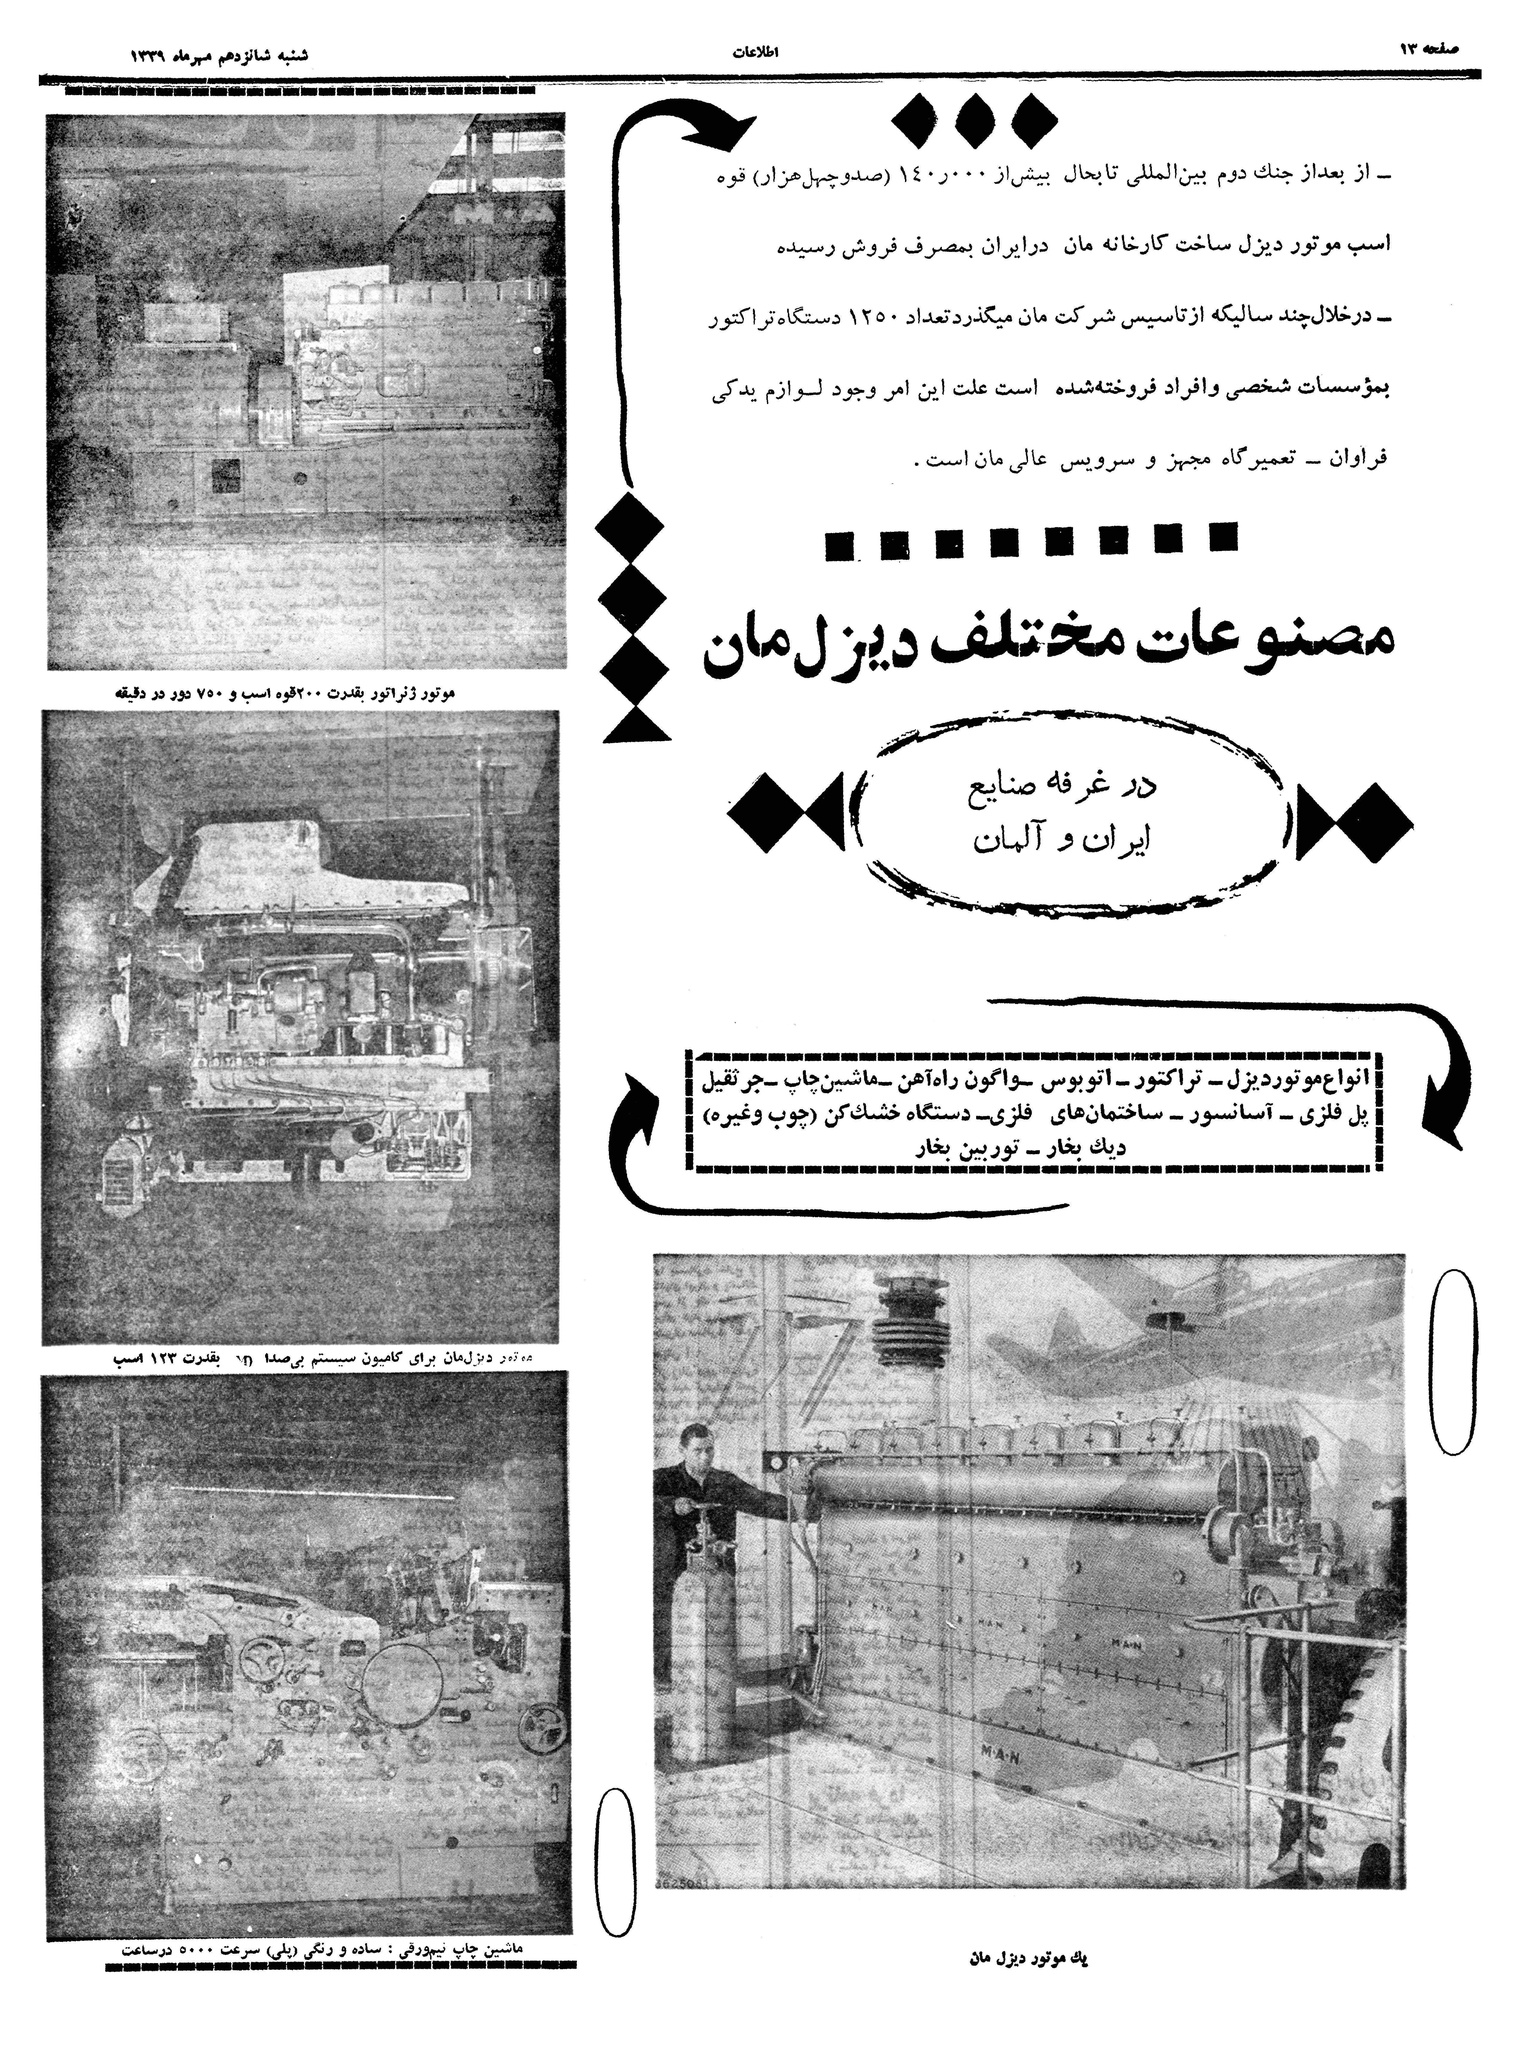 صفحه ۱۳
اطلاعات
شنبه شانزدهم مهرماه ۱۳۳۹
ـ از بعداز جنك دوم بین‌المللی تابحال بیش‌از ۱۴۰٫۰۰۰ (صدوچهل‌هزار) قوه
اسب موتور دیزل ساخت کارخانه مان درایران بمصرف فروش رسیده
ـ درخلال‌چند سالیکه ازتاسیس شرکت مان میگذردتعداد ۱۲۵۰ دستگاه‌تراکتور
بمؤسسات شخصی وافراد فروخته‌شده است علت این امر وجود لـوازم یدکی
فراوان ـ تعمیرگاه مجهز و سرویس عالی مان است .
مصنوعات مختلف دیزل‌مان
در غرفه صنایع
ایران و آلمان
انواع‌موتوردیزل ـ تراکتور ـ اتوبوس ـواگون راه‌آهن ـماشین‌چاپ ـجرثقیل
پل فلزی ـ آسانسور ـ ساختمان‌های فلزی ـ دستگاه خشك‌کن (چوب وغیره)
دیك بخار ـ توربین بخار
M·A·N
M·A·N
M·A·N
یك موتور دیزل مان
موتور ژنراتور بقدرت ۲۰۰قوه اسب و ۷۵۰ دور در دقیقه
موتور دیزل‌مان برای کامیون سیستم بی‌صدا M بقدرت ۱۲۳ اسب
ماشین چاپ نیم‌ورقی : ساده و رنگی (پلی) سرعت ۵۰۰۰ درساعت